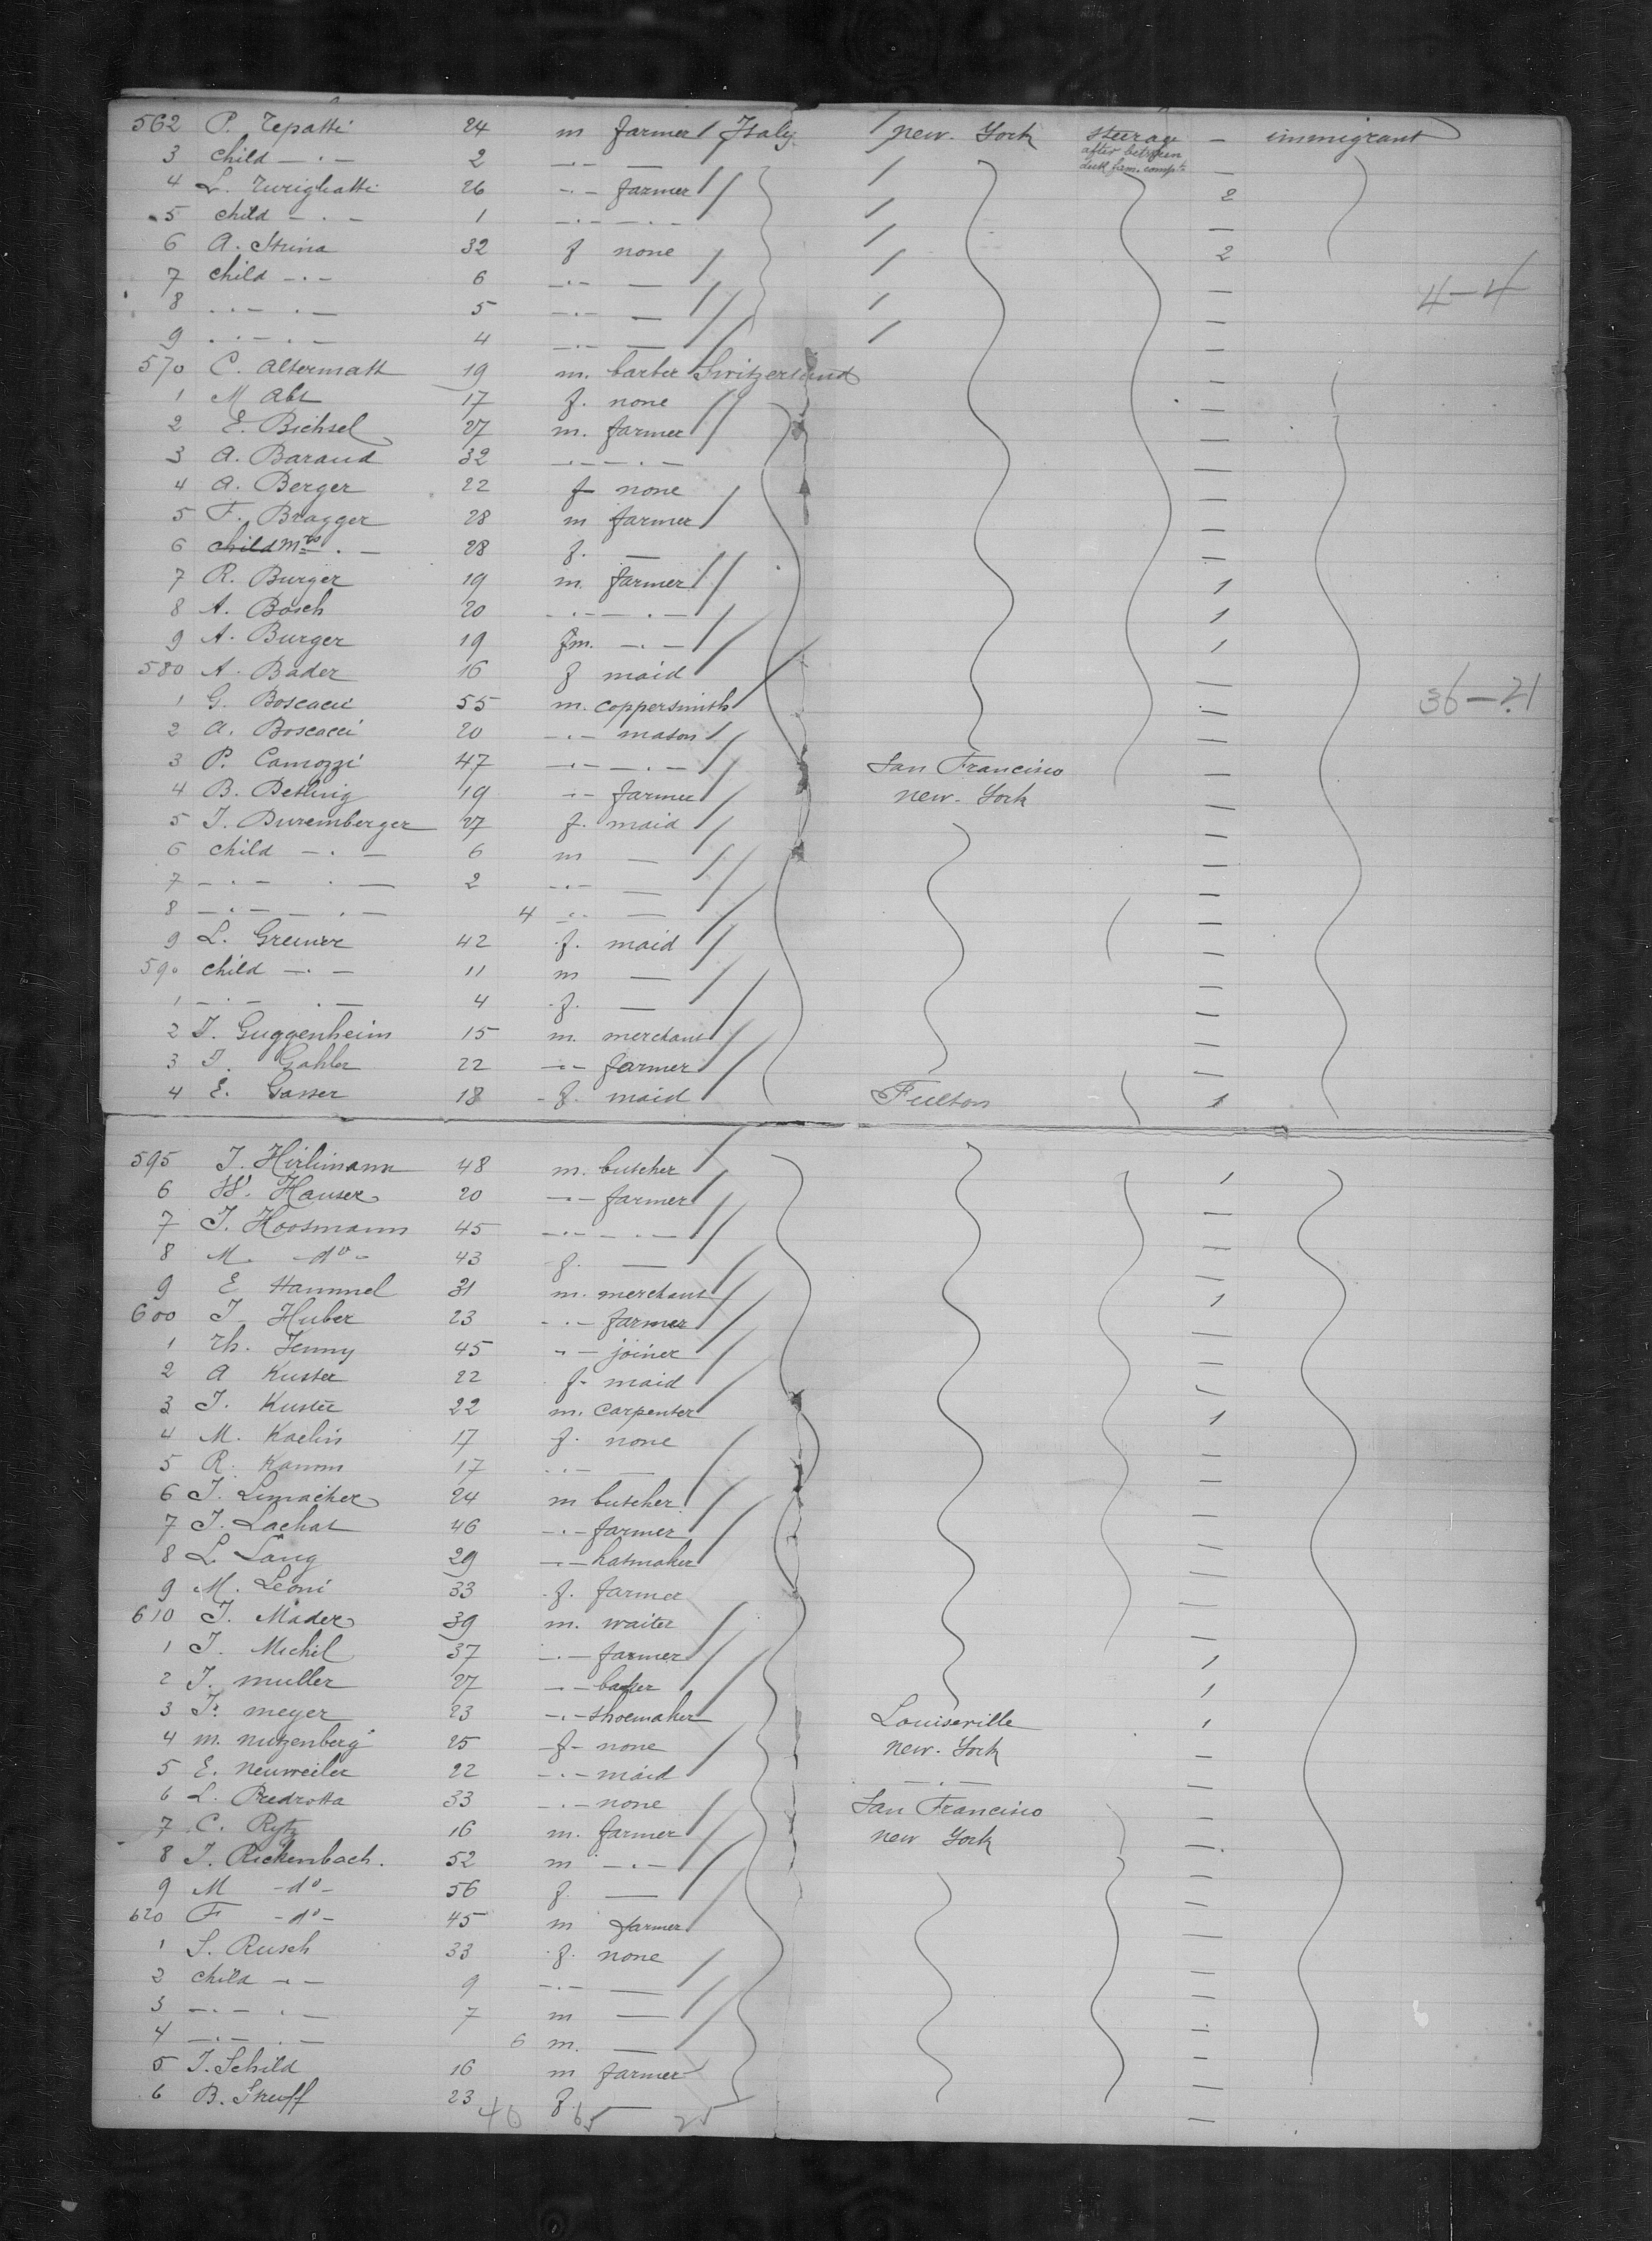 562 P. Tepatti 24 m farmer Italy new-York steerage - immigrant
after between
deck fam. compt.
3 child -·- 2 -·- — —
4 L. Turighatti 26 -·- farmer 2
5 child -·- 1 -·- -·- —
6 A. Strina 32 f none 2
7 child -·- 6 -·- — —
4-4
8 -·- -·- 5 -·- — —
9 -·- -·- 4 -·- — —
570 C. Altermatt 19 m. barber Switzerland —
1 M Abt 17 f. none —
2 E. Bichsel 27 m. farmer —
3 A. Baraud 32 -·- -·- —
4 A. Berger 22 f none —
5 F. Bragger 28 m farmer —
6 child Mrs -·- 28 f. — —
7 R. Burger 19 m. farmer 1
8 A. Bosch 20 -·- -·- 1
9 A. Burger 19 fm. -·- 1
580 A. Bader 16 f maid —
36-21
1 G. Boscacci 55 m. coppersmith —
2 A. Boscacci 20 -·- mason —
3 P. Camozzi 47 -·- -·- San Francisco —
4 B. Bethig 19 -·- farmer new-York —
5 J. Duremberger 27 f. maid —
6 child -·- 6 m — —
7 -·- -·- 2 -·- — —
8 -·- -·- 4 -·- — —
9 L. Greuter 42 f. maid —
590 child -·- 11 m — —
1 -·- -·- 4 f. — —
2 J. Guggenheim 15 m. merchant —
3 J. Gahler 22 -·- farmer —
4 E. Gasser 18 f. maid Fulton 1
595 J. Hirlimann 48 m. butcher 1
6 W. Hauser 20 -·- farmer —
7 J. Hoosmann 45 -·- -·- —
8 M. -do- 43 f. — —
9 E Hammel 31 m. merchant 1
600 J Huber 23 -·- farmer —
1 Th. Jenny 45 -·- joiner —
2 A Kuster 22 f- maid —
3 J. Kuster 22 m. carpenter 1
4 M. Kaelin 17 f. none —
5 R. Kamm 17 -·- — —
6 J. Limacher 24 m butcher —
7 J. Lachat 46 -·- farmer —
8 L. Lang 29 -·- hatmaker —
9 M. Leoni 33 f. farmer —
610 J. Mader 39 m. waiter —
1 J. Michel 37 -·- farmer 1
2 J. muller 27 -·- baker 1
3 Fr. meyer 23 -·- shoemaker Louiseville 1
4 m. nutzenberg 25 -f- none new-York —
5 E. neuweiler 22 -·- maid -·- —
6 L. Pedrotta 33 -·- none San Francisco —
7 C. Rytz 16 m. farmer new York —
8 J. Rickenbach. 52 m -·- —
9 M -do- 56 f. — —
620 F -do- 45 m farmer —
1 S. Rusch 33 f. none —
2 child -·- 9 -·- — —
3 -·- -·- 7 m — —
4 -·- -·- 6 m. — —
5 J. Schild 16 m farmer —
6 B. Streiff 23 f — —
40 65 25